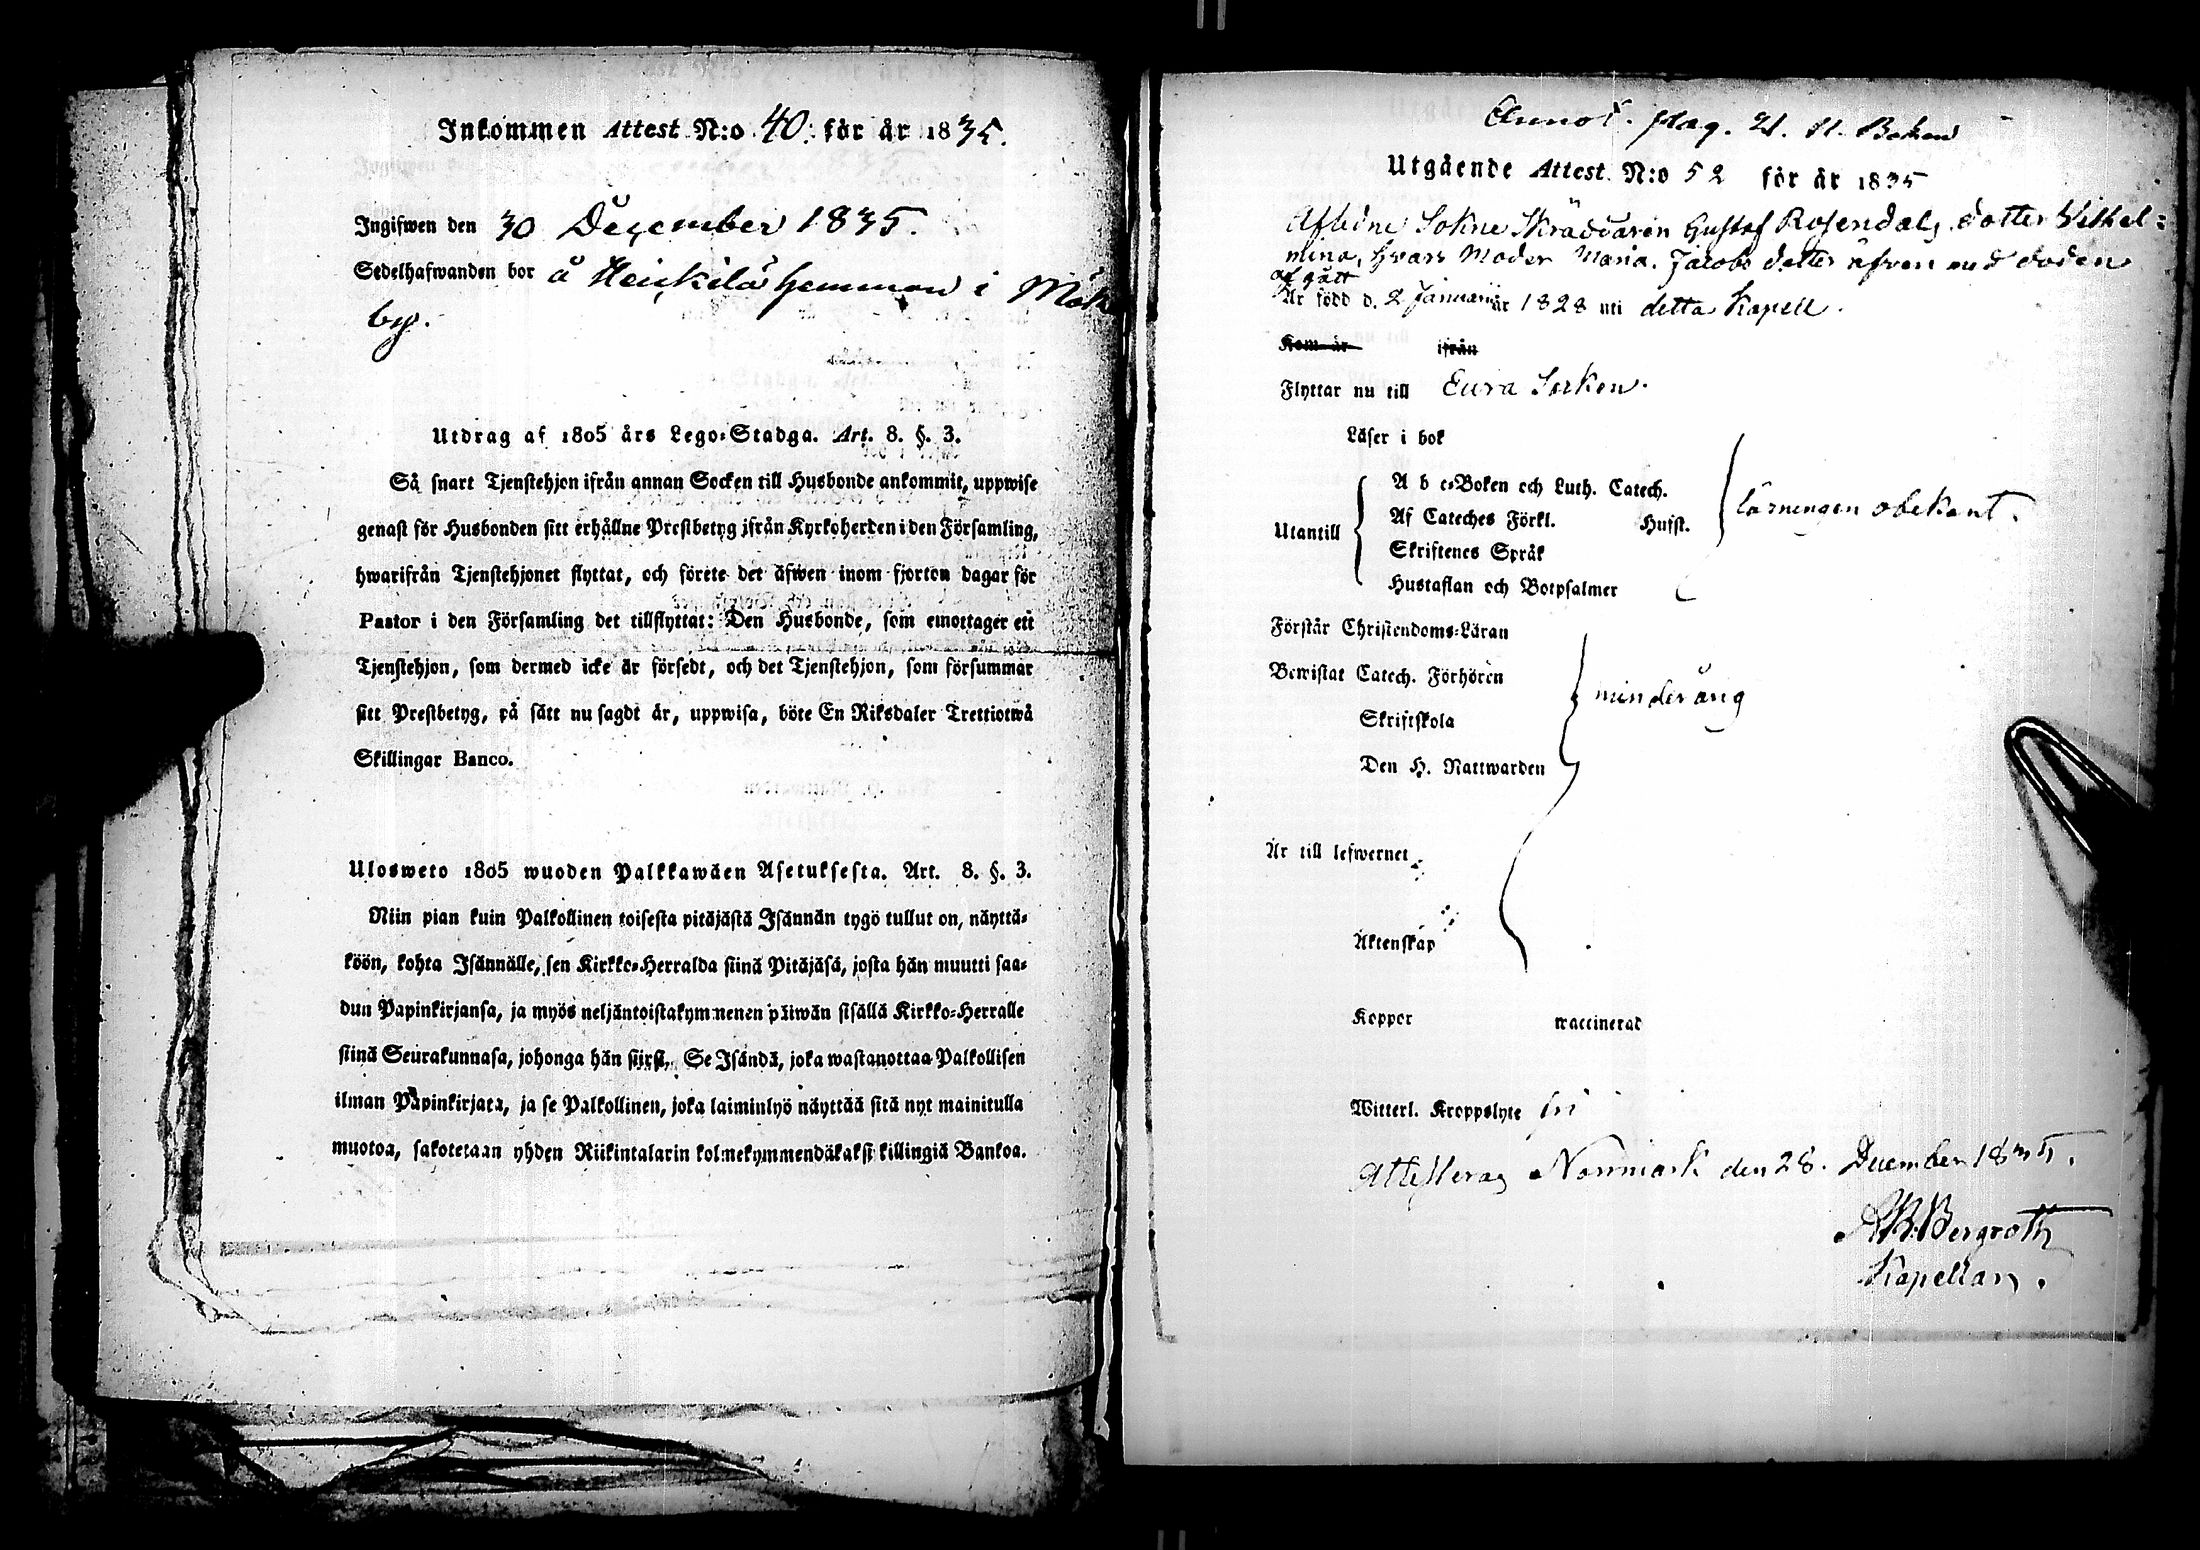 Inkommen Attest N:o 40. för år 1835.
Ingifwen den 30 December 1835.
Sedelhafwanden bor å Heickilä hemman i
by.
Utdrag af 1805 års Lego-Stadga. Art. 8. §. 3.
Så snart Tjenstehjon ifrån annan Socken till Husbonde ankommit, uppwise
genast för Husbonden sitt erhållne Prestbetyg ifrån Kyrkoherden i den Församling,
hwarifrån Tjenstehjonet flyttat, och förete det äfwen inom fjorton dagar för
Pastor i den Församling det tillflyttat: Den Husbonde, som emottager ett
Tjenstehjon, som dermed icke är försedt, och det Tjenstehjon, som försummar
sitt Prestbetyg, på sätt nu sagdt är, uppwisa, böte En Riksdaler Trettiotwå
Skillingar Banco.
Ulosweto 1805 wuoden Palkkawäen Asetuksesta. Art. 8. §. 3.
Niin pian kuin Palkollinen toisesta pitäjästä Isännän tygö tullut on, näyttä-
köön, kohta Isännälle, sen Kirkko-Herralda siinä Pitäjäsä, josta hän muutti saa-
dun Papinkirjansa, ja myös neljäntoistakymmenen päiwän sisällä Kirkko-Herralle
siinä Seurakunnasa, johonga hän siirsi. Se Isändä, joka wastanottaa Palkollisen
ilman Papinkirjata, ja se Palkollinen, joka laiminlyö näyttää sitä nyt mainitulla
muotoa, sakotetaan yhden Riikintalarin kolmekymmendäkaksi killingiä Bankoa.
pag. 21. Boken
Utgående Attest N:o 52 för år 1835
Aflidne Sokne Skräddaren Gustaf Rosendals dotter Vilhel=
mina, hvars Moder Maria Jacobs dotter äfven med döden
afgått
Är född d. 2 Januari år 1828 uti detta Kapell.
Kom år ifrån
Flyttar nu till Eura Socken.
Läser i bok
A b c-Boken och Luth. Catech.
Utantill
Af Cateches Förkl. Husst.
Skriftenes Språk
Hustaflan och Botpsalmer
läsningen obekant.
Förstår Christendoms-Läran
Bewistat Catech. Förhören
minderårig
Skriftskola
Den H. Nattwarden
Är till lefwernet
Äktenskap
Koppor waccinerad
Witterl. Kroppslyte fri
Attesteras Norrmark den 28. December 1835.
Bergroth
Kapellan.